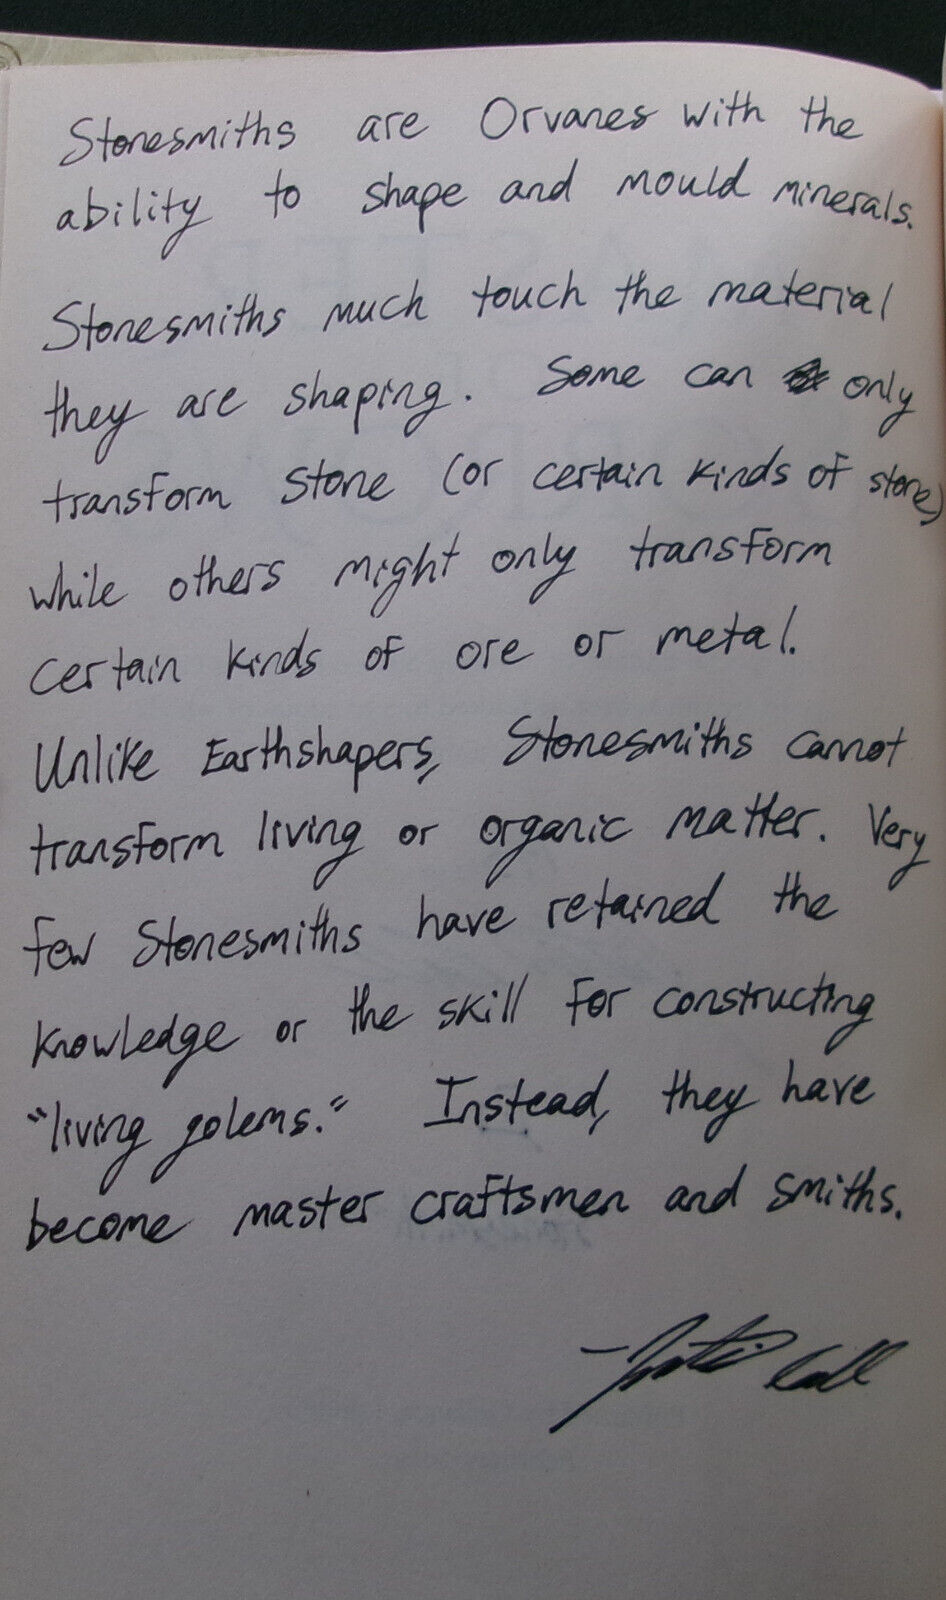 Stonesmiths are Orvanes with the
ability to shape and mould minerals.
Stonesmiths much touch the material
they are shaping. Some can only
transform stone (or certain kinds of stone)
while others might only transform
certain kinds of ore or metal.
Unlike Earthshapers, Stonesmiths cannot
transform living or organic matter. Very
few Stonesmiths have retained the
knowledge or the skill for constructing
"living golems." Instead, they have
become master craftsmen and smiths.